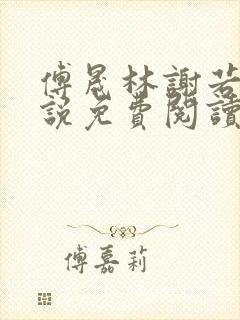 傅晟林謝若
說免費閱讀
傅嘉莉